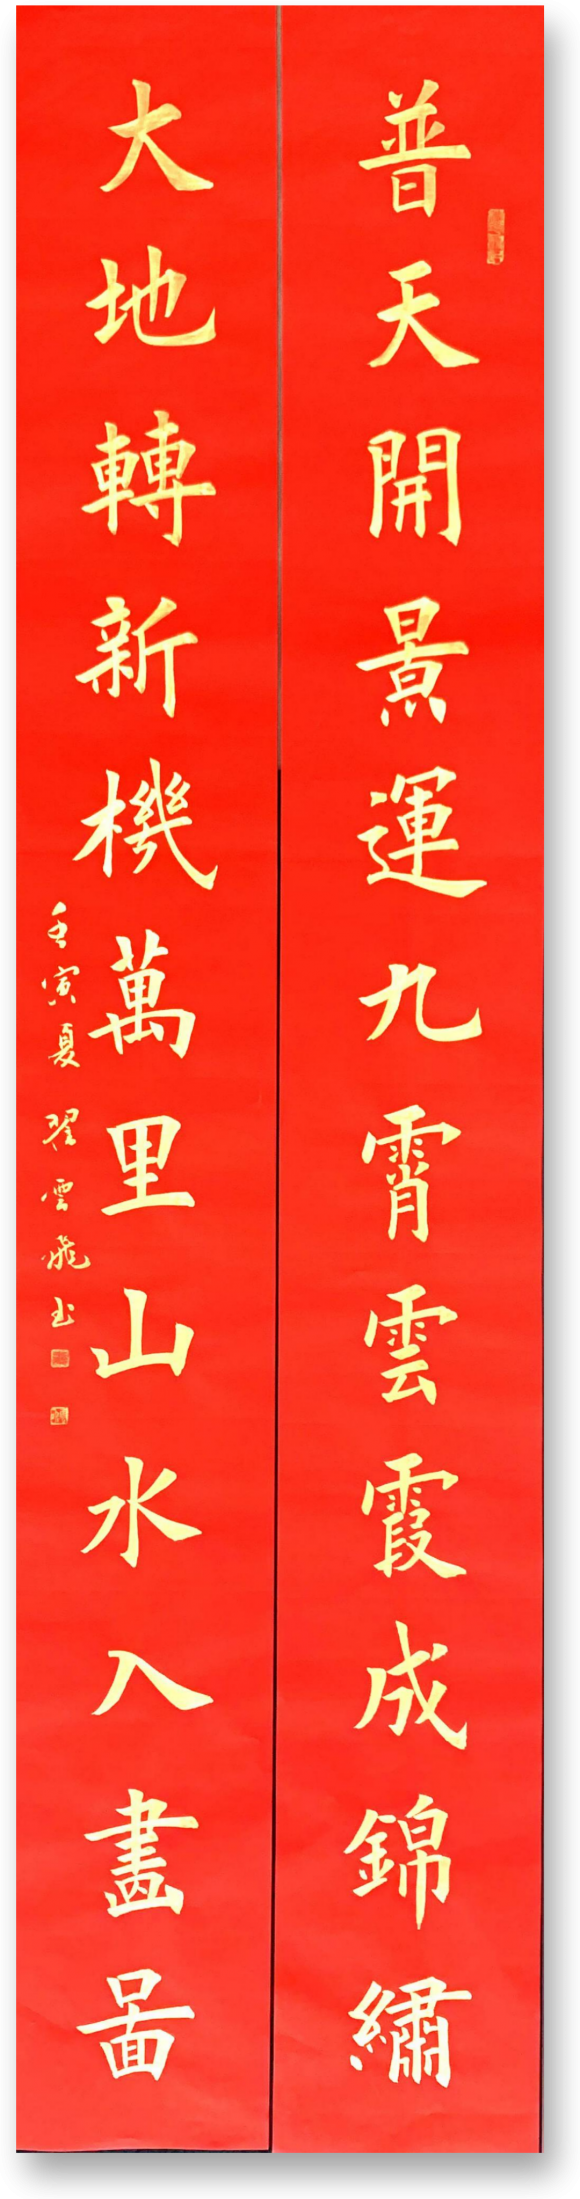 普天開景運九霄雲霞成錦繡
大地轉新機萬里山水入畫啚
壬寅夏翟雲飛书